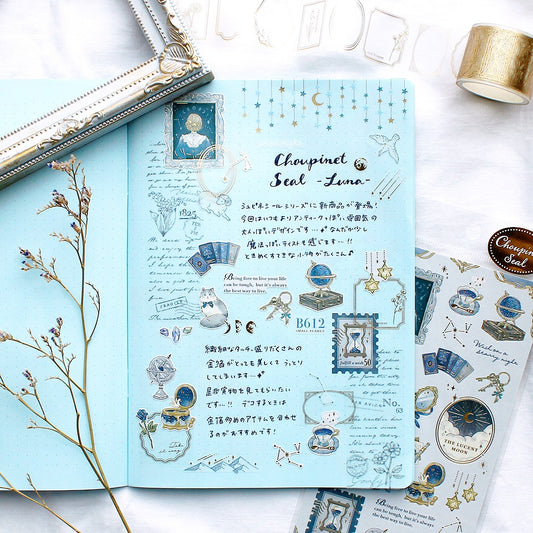 Choupinet
Seal -Luna-
シュピネシールシリーズに新商品が登場!
今回はいつもよりアンティークっぽい雰囲気の
大人っぽいデザインです…✦ なんだか少し
魔法っぽいテイストも感じます…!!
ときめくすてきな小物がたくさん♪
1825
Being free to live your life
can be tough, but it's always
the best way to live.
B612
繊細なタッチ、盛りだくさんの
金箔がとっても美しくて うっとり
してしまいます…✦
是非実物を見てもらいたい
です…!! デコするときは
金箔多めのアイテムを合わせ
るのがおすすめです!
No.
63
50
Choupinet
Seal
THE LUCENT
MOON
Being free to live your life
can be tough, but it's always
the best way to live.